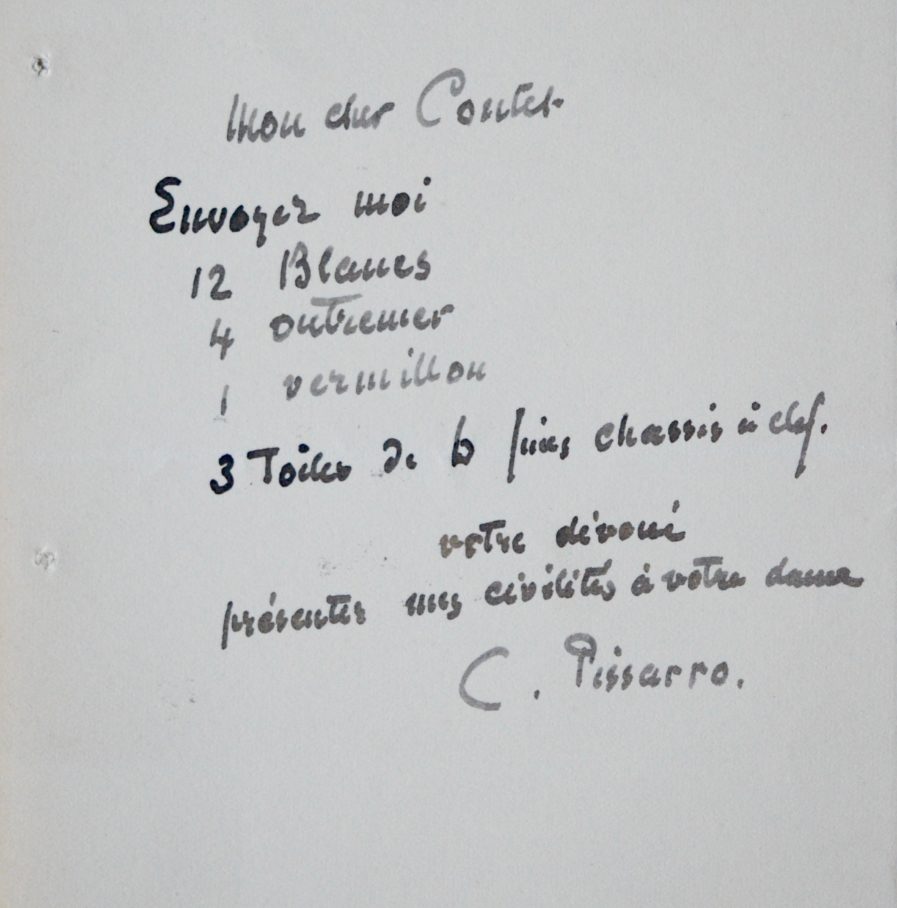 Mon cher Contet
Envoyez moi
12 Blancs
4 outremer
1 vermillon
3 Toiles de 6 fines chassis à clef.
votre dévoué
présenter mes civilités à votre dame
C. Pissarro.